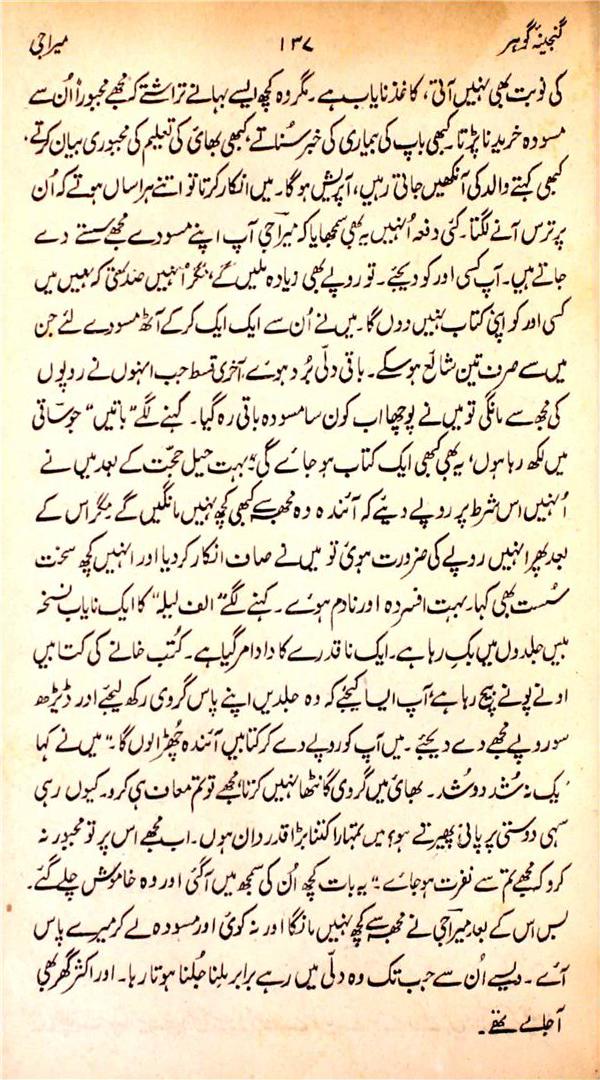 گنجینۂ گوہر ۱۳۷ میراجی
کی نوبت بھی نہیں آتی، کاغذ نایاب ہے۔ مگر وہ کچھ ایسے بہانے تراشتے کہ مجھے مجبوراً اُن سے
مسودہ خریدنا پڑتا۔ کبھی باپ کی بیماری کی خبر سُناتے، کبھی بھائی کی تعلیم کی مجبوری بیان کرتے،
کبھی کہتے والد کی آنکھیں جاتی رہیں، آپریشن ہوگا۔ میں انکار کرتا تو اتنے ہراساں ہوتے کہ اُن
پر ترس آنے لگتا۔ کئی دفعہ اُنہیں یہ بھی سمجھایا کہ میراجی آپ اپنے مسودے مجھے سستے دے
جاتے ہیں۔ آپ کسی اور کو دیجئے۔ تو روپے بھی زیادہ ملیں گے، مگر اُنہیں ضد تھی کہ نہیں میں
کسی اور کو اپنی کتاب نہیں دوں گا۔ میں نے اُن سے ایک ایک کرکے آٹھ مسودے لئے جن
میں سے صرف تین شائع ہوسکے۔ باقی دلّی بُرد ہوئے، آخری قسط جب انہوں نے روپوں
کی مجھ سے مانگی تو میں نے پوچھا اب کون سا مسودہ باقی رہ گیا۔ کہنے لگے "باتیں" جو ساقی
میں لکھ رہا ہوں، یہ بھی کبھی ایک کتاب ہو جائے گی" بہت حیل حجت کے بعد میں نے
اُنہیں اس شرط پر روپے دیئے کہ آئندہ وہ مجھ سے کبھی کچھ نہیں مانگیں گے مگر اس کے
بعد پھر انہیں روپے کی ضرورت ہوئی تو میں نے صاف انکار کردیا اور انہیں کچھ سخت
سُست بھی کہا۔ بہت افسردہ اور نادم ہوئے۔ کہنے لگے "الف لیلہ" کا ایک نایاب نسخہ
بیس جلدوں میں بک رہا ہے۔ ایک ناقدرے کا دادا مر گیا ہے۔ کُتب خانے کی کتابیں
اونے پونے بیچ رہا ہے، آپ ایسا کیجئے کہ وہ جلدیں اپنے پاس گروی رکھ لیجئے اور ڈیڑھ
سو روپے مجھے دے دیجئے۔ میں آپ کو روپے دے کر کتابیں آئندہ چُھڑالوں گا۔" میں نے کہا
"یک نہ شُد دو شُد۔ بھائی میں گروی گانٹھا نہیں کرتا، مجھے تو تم معاف ہی کرو۔ کیوں رہی
سہی دوستی پر پانی پھیرتے ہو؟ میں تمہارا کتنا بڑا قدردان ہوں۔ اب مجھے اس پر تو مجبور نہ
کرو کہ مجھے تم سے نفرت ہو جائے۔" یہ بات کچھ اُن کی سمجھ میں آگئی اور وہ خاموش چلے گئے۔
بس اس کے بعد میراجی نے مجھ سے کچھ نہیں مانگا اور نہ کوئی اور مسودہ لے کر میرے پاس
آئے۔ ویسے اُن سے جب تک وہ دلّی میں رہے برابر ملنا جُلنا ہوتا رہا۔ اور اکثر گھر بھی
آجاتے تھے۔